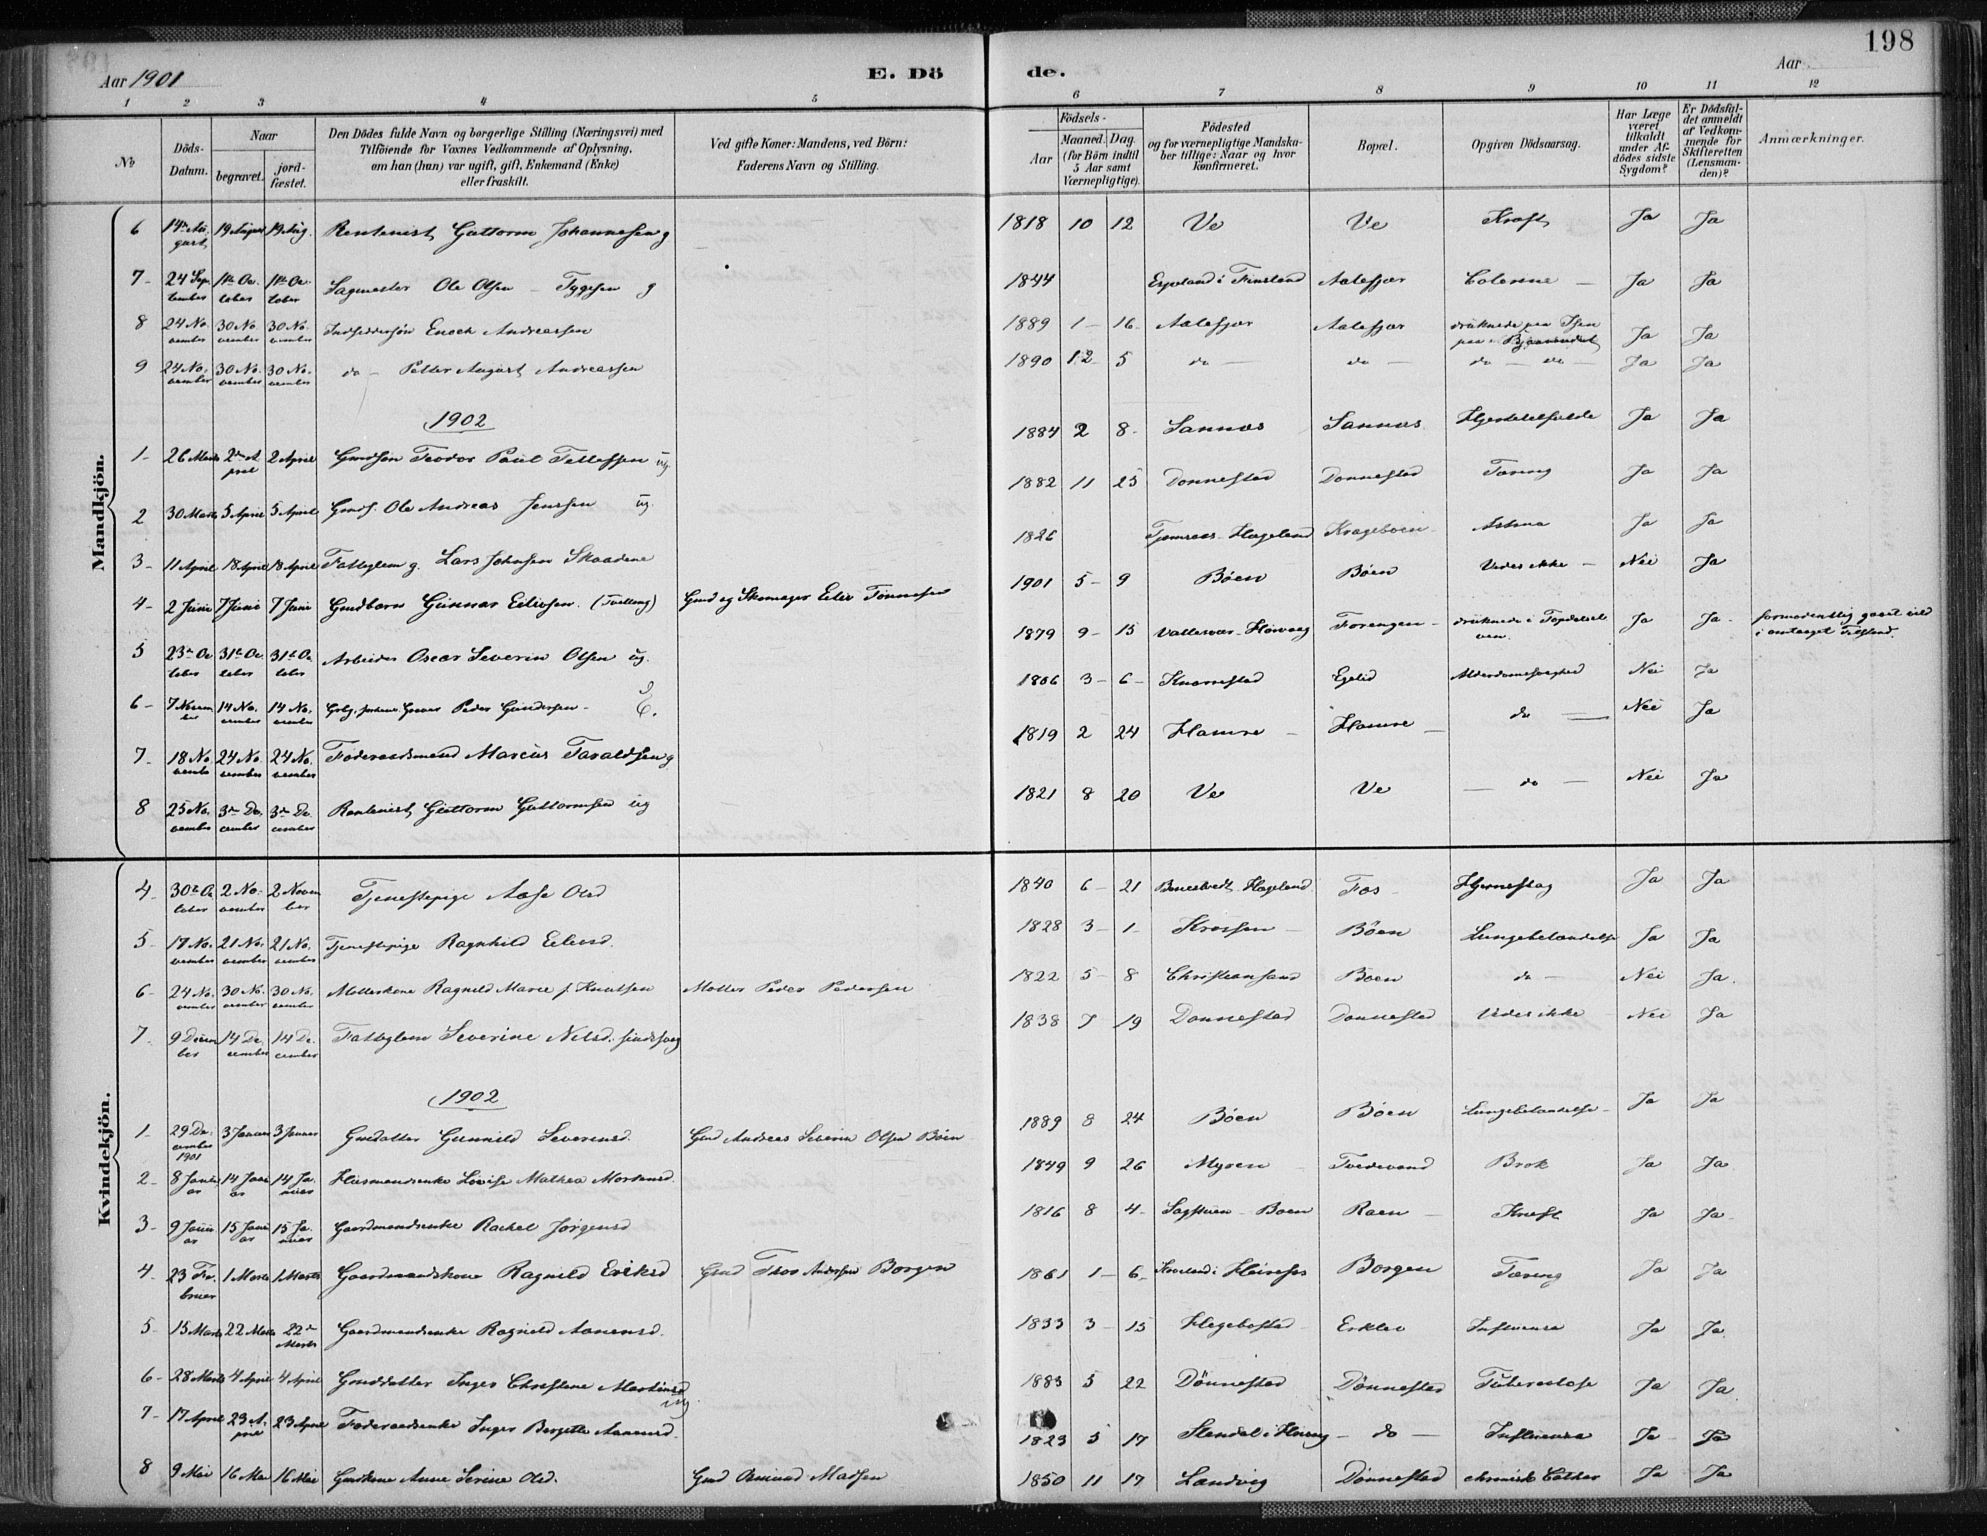 198
Aar 1901
E. Dö
de.
Aar
1 2 3 4 5 6 7 8 9 10 11 12
No
Döds-
Datum.
Naar
begravet.
jord-
fæstet.
Den Dödes fulde Navn og borgerlige Stilling (Næringsvei) med
Tilföiende for Voxnes Vedkommende af Oplysning,
om han (hun) var ugift, gift, Enkemand (Enke)
eller fraskilt.
Ved gifte Koner: Mandens, ved Börn:
Faderens Navn og Stilling.
Födsels-
Aar
Maaned. Dag
(for Börn indtil
5 Aar samt
Værnepligtige).
Födested
og for værnepligtige Mandska-
ber tillige: Naar og hvor
konfirmeret.
Bopæl.
Opgiven Dödsaarsag.
Har Læge
været
tilkaldt
under Af-
dödes sidste
Sygdom?
Er Dödsfal-
det anmeldt
af Vedkom-
mende for
Skifteretten
(Lensman-
den)?
Anmærkninger.
Mandkjön.
6 14de August 19 August 19 Aug. Rentenist Guttorm Johannesen g 1818 10 12 Ve Ve Kræft Ja Ja
7 24 September 11te October 11te October Sagmester Ole Olsen Tygesen g 1844 i Finsland Aalefjær Ja Ja
8 24 November 30 November 30 November Enoch Andreassen 1889 1 16 Aalefjær Aalefjær druknede paa Isen paa Ja Ja
9 24 November 30 November 30 November do Petter August Andreassen 1890 12 5 do do do do Ja Ja
1902
1 26 Marts 2den April 2 April Gmdsøn Teodor Paul Tellefsen ug. 1884 2 8 Sannæs Sannæs Ja Ja
2 30 Marts 5 April 5 April Gmds. Ole Andreas Jenssen ug. 1882 11 25 Donnestad Donnestad Tæring Ja Ja
3 11 April 18 April 18 April Fattiglem g. Lars Johnsen Skaadene 1826 Hægeland Krageboen Astma Ja Ja
4 2 Juni 7 Juni 7 Juni Gmdbarn Gunnar Eilivsen (Tvilling) Gmd og Skomager Eiliv Tønnesen 1901 5 9 Bøen Bøen Vides ikke Nei Ja
5 23de October 31te October 31te October Arbeider Oscar Severin Olsen ug. 1879 9 15 Høivaag druknede i Topdalselven Ja Ja formodentlig gaaet vild i omtaaget Tilstand.
6 7 November 14 November 14 November Peder Gundersen E. 1806 3 6 Knarrestad Eglid Alderdomssvaghed Nei Ja
7 18 November 24 November 24 November Føderaadsmand Marcus Taraldsen g 1819 2 24 Hamre Hamre do Nei Ja
8 25 November 3die December 3die December Rentenist Guttorm Guttormsen ug 1821 8 20 Ve Ve do Nei Ja
Kvindekjön.
4 30te October 2 November 2 November Tjenestepige Aase Olsd 1840 6 21 Hægeland Fos Hjerneslag Ja Ja
5 17 November 21 November 21 November Tjenestepige Ragnhild Eilivsd. 1828 3 1 Krossen Bøen Lungebetændelse Ja Ja
6 24 November 30 November 30 November Møllerkone Ragnild Marie f. Knutsen Møller Peder Pedersen 1822 5 8 Christiansand Boen do Nei Ja.
7 9 December 14 December 14 December Fattiglem Severine Nilsd. sindssvag 1838 7 19 Donnestad Donnestad Vides ikke Nei Ja
1902
1 29 December 1901 3 Januar 3 Januar Gmdatter Gunnild Severinsd. Gmd Andreas Severin Olsen Bøen 1889 8 24 Bøen Bøen Lungebetændelse Ja Ja
2 8 Januar 14 Januar 14 Januar Husmandsenke Lovise Mathea Mortensd. 1849 9 26 Myren Tvedevand Brok Ja Ja.
3 9 Januar 15 Januar 15 Januar Gaardmandsenke Rachel Jørgensd 1816 8 4 Boen Raen Kræft Ja Ja
4 23 Februar 1 Marts 1 Marts Gaardmandskone Ragnild Eriksd Gmd Thor Andersen Borgen 1861 1 6 Borgen Tæring Ja Ja
5 15 Marts 22 Marts 22de Marts Gaardmandsenke Ragnild Aanensd. 1833 3 15 Hegebostad Erklev Influensa Ja Ja.
6 28 Marts 4 April 4 April Gmddatter Inger Christene Martinsd ug. 1883 5 22 Dønnestad Dønnestad Tuberculose Ja Ja.
7 17 April 23 April 23 April Føderaadsenke Inger Bergitte Aanensd. 1823 5 17 Stendal i do Influensa Ja Ja
8 9 Mai 16 Mai 16 Mai Gmdkone Anne Serine Olsd. Gmd Osmund Madsen 1850 11 17 Landvig Dønnestad chronisk Ja Ja